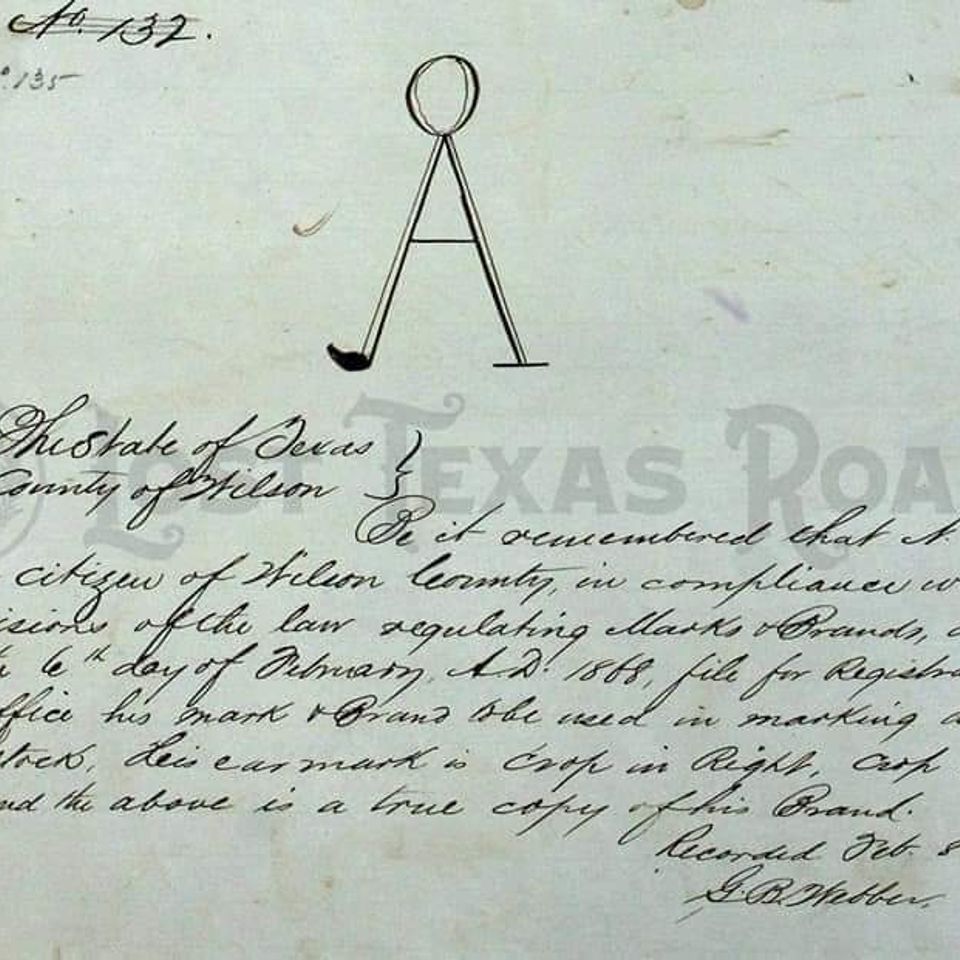 No. 132.
o. 135
The State of Texas }
County of Wilson }
LOST TEXAS ROA
Be it remembered that N.
citizen of Wilson County, in compliance w
isions of the law regulating Marks & Brands,
6th day of February, A.D. 1868, file for Registra
ffice his mark & Brand to be used in marking a
stock. His ear mark is Crop in Right, Crop
nd the above is a true copy of his Brand.
Recorded Feb. 8
G. B. Webber.